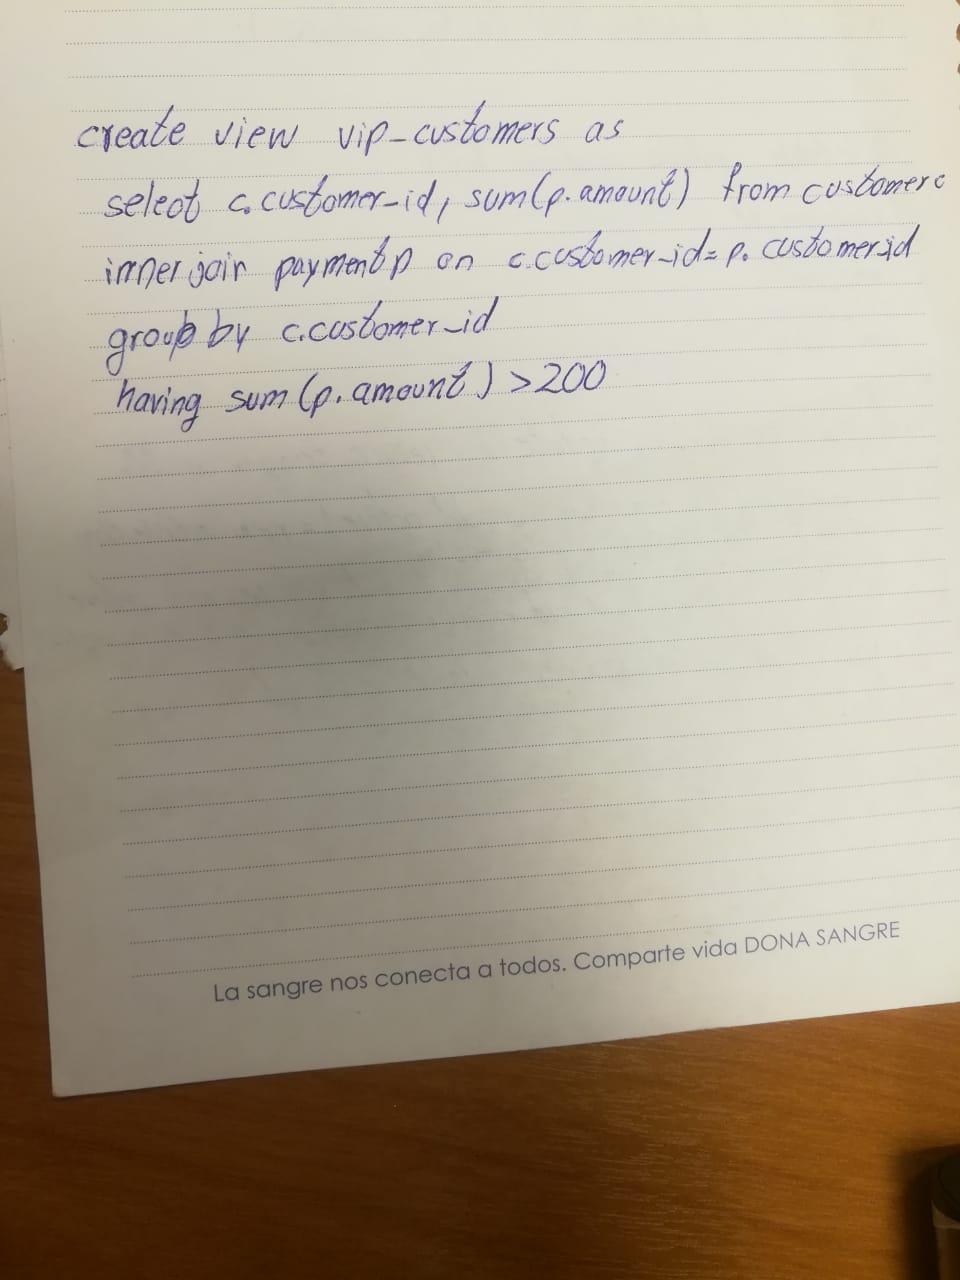 create view vip_customers as
select c.customer_id, sum(p.amount) from customer c
inner join payment p on c.customer_id = p.customer_id
group by c.customer_id
having sum(p.amount) > 200
La sangre nos conecta a todos. Comparte vida DONA SANGRE